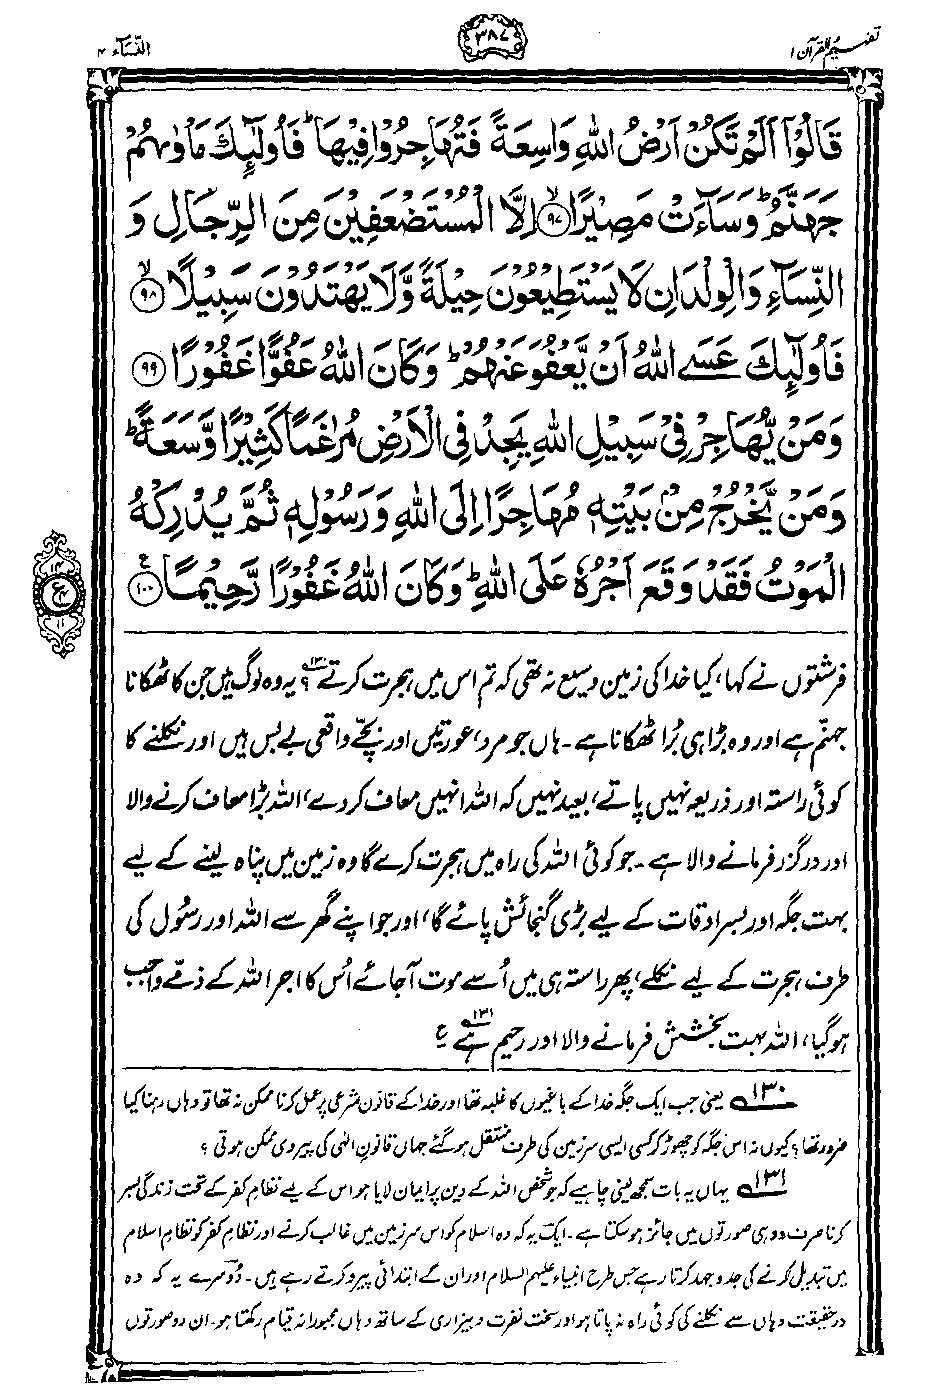 تفہیم القرآن ۱
۳۸۷
النسآء ۴
قَالُوْٓا اَلَمْ تَكُنْ اَرْضُ اللّٰهِ وَاسِعَةً فَتُهَاجِرُوْا فِيْهَا ؕ فَاُولٰٓئِكَ مَاْوٰىهُمْ
جَهَنَّمُ ؕ وَسَآءَتْ مَصِيْرًا ۙ﴿۹۷﴾ اِلَّا الْمُسْتَضْعَفِيْنَ مِنَ الرِّجَالِ وَ
النِّسَآءِ وَالْوِلْدَانِ لَا يَسْتَطِيْعُوْنَ حِيْلَةً وَّلَا يَهْتَدُوْنَ سَبِيْلًا ۙ﴿۹۸﴾
فَاُولٰٓئِكَ عَسَى اللّٰهُ اَنْ يَّعْفُوَ عَنْهُمْ ؕ وَكَانَ اللّٰهُ عَفُوًّا غَفُوْرًا ﴿۹۹﴾
وَمَنْ يُّهَاجِرْ فِيْ سَبِيْلِ اللّٰهِ يَجِدْ فِي الْاَرْضِ مُرٰغَمًا كَثِيْرًا وَّسَعَةً ؕ
وَمَنْ يَّخْرُجْ مِنْۢ بَيْتِهٖ مُهَاجِرًا اِلَى اللّٰهِ وَرَسُوْلِهٖ ثُمَّ يُدْرِكْهُ
الْمَوْتُ فَقَدْ وَقَعَ اَجْرُهٗ عَلَى اللّٰهِ ؕ وَكَانَ اللّٰهُ غَفُوْرًا رَّحِيْمًا ﴿۱۰۰﴾ع
۱۴
ع
۱۱
فرشتوں نے کہا، کیا خدا کی زمین وسیع نہ تھی کہ تم اس میں ہجرت کرتے؟۱۳۰ یہ وہ لوگ ہیں جن کا ٹھکانا
جہنّم ہے اور وہ بڑا ہی بُرا ٹھکانا ہے۔ ہاں جو مرد، عورتیں اور بچّے واقعی بے بس ہیں اور نکلنے کا
کوئی راستہ اور ذریعہ نہیں پاتے، بعید نہیں کہ اللہ انہیں معاف کر دے، اللہ بڑا معاف کرنے والا
اور درگزر فرمانے والا ہے۔ جو کوئی اللہ کی راہ میں ہجرت کرے گا وہ زمین میں پناہ لینے کے لیے
بہت جگہ اور بسر اوقات کے لیے بڑی گنجائش پائے گا، اور جو اپنے گھر سے اللہ اور رسُول کی
طرف ہجرت کے لیے نکلے، پھر راستہ ہی میں اُسے موت آجائے اُس کا اجر اللہ کے ذمّے واجب
ہوگیا، اللہ بہت بخشش فرمانے والا اور رحیم ہے۱۳۱ ع
۱۳۰ یعنی جب ایک جگہ خدا کے باغیوں کا غلبہ تھا اور خدا کے قانون شرعی پر عمل کرنا ممکن نہ تھا تو وہاں رہنا کیا
ضرور تھا؟ کیوں نہ اس جگہ کو چھوڑ کر کسی ایسی سرزمین کی طرف منتقل ہو گئے جہاں قانونِ الٰہی کی پیروی ممکن ہوتی؟
۱۳۱ یہاں یہ بات سمجھ لینی چاہیے کہ جو شخص اللہ کے دین پر ایمان لایا ہو اس کے لیے نظامِ کفر کے تحت زندگی بسر
کرنا صرف دو ہی صورتوں میں جائز ہو سکتا ہے۔ ایک یہ کہ وہ اسلام کو اس سرزمین میں غالب کرنے اور نظامِ کفر کو نظامِ اسلام
میں تبدیل کرنے کی جدوجہد کرتا رہے جس طرح انبیاء علیہم السلام اور ان کے ابتدائی پیرو کرتے رہے ہیں۔ دُوسرے یہ کہ وہ
درحقیقت وہاں سے نکلنے کی کوئی راہ نہ پاتا ہو اور سخت نفرت و بیزاری کے ساتھ وہاں مجبورانہ قیام رکھتا ہو۔ ان دو صورتوں